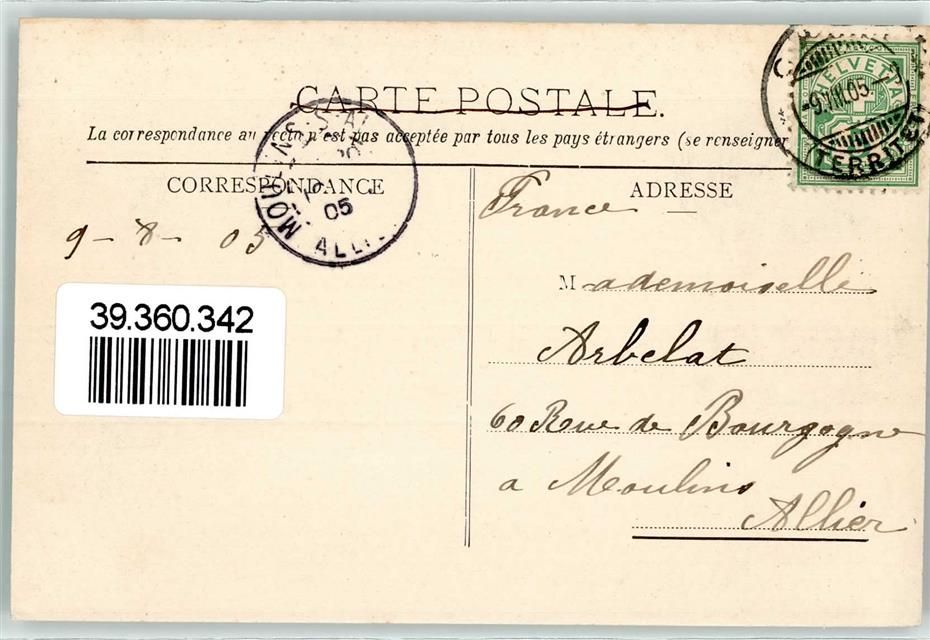 CARTE POSTALE.
HELVETIA
-9.VIII.05.-
TERRITET
La correspondance au recto n'est pas acceptée par tous les pays étrangers (se renseigner
CORRESPONDANCE
ADRESSE
MOULINS
05
ALLI
France
9-8-05
Mademoiselle
39.360.342
Arbelat
60 Rue de Bourgogne
a Moulins
Allier